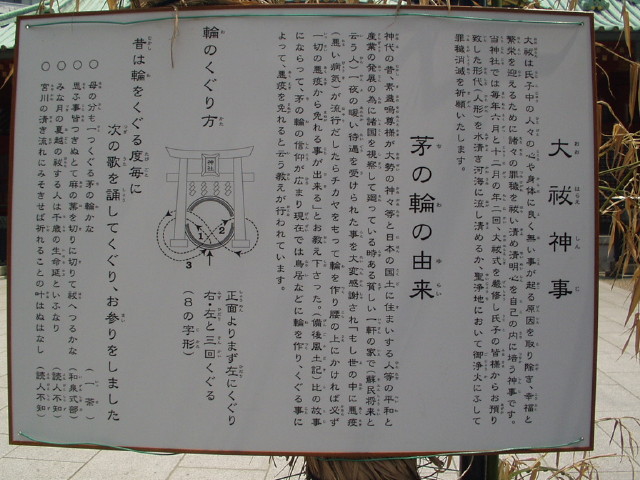 大祓神事
大祓は氏子中の人々の心や身体に良く無い事が起る原因を取り除き、幸福と
繁栄を迎えるために諸々の罪穢を祓い清め清明心を自己の内に培う神事です。
当神社では毎年六月と十二月の年二回、大祓式を厳修し氏子の皆様からお預り
致した形代(人形)を水清き河海に流し清めるか、聖浄地において御浄火にふして
罪穢消滅を祈願いたします。
茅の輪の由来
神代の昔、素盞嗚尊様が大勢の神々等と日本の国土に住まいする人等の平和と
産業の発展の為に諸国を視察して廻っている時ある貧しい一軒の家で(蘇民将来と
云う人)一夜の暖い待遇を受けられた事を大変感謝され「もし世の中に悪疫
(悪い病気)が流行だしたらチカヤをもって輪を作り腰の上にかければ必ず
一切の悪疫から免れる事が出来る」とお教え下さった。(備後風土記)比の故事
にならって、茅の輪の信仰が広まり現在では鳥居などに輪を作り、くぐる事に
よって、悪疫を免れると云う教えが行われています。
輪のくぐり方
神社
1
2
3
正面よりまず左にくぐり
右、左と三回くぐる
(8の字形)
昔は輪をくぐる度毎に
次の歌を謡してくぐり、お参りをしました
○ 母の分も一つくぐる茅の輪かな (一茶)
○ 思ふ事皆つきぬとて麻の葉を切りに切りて祓へつるかな (和泉式部)
○ みな月の夏越の祓する人は千歳の生命延といふなり (読人不知)
○ 宮川の清き流れにみそきせば祈れることの叶はぬはなし (読人不知)